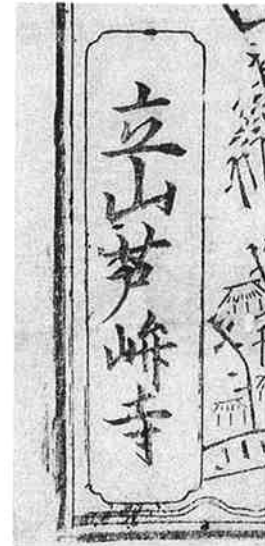 立山芦峅寺